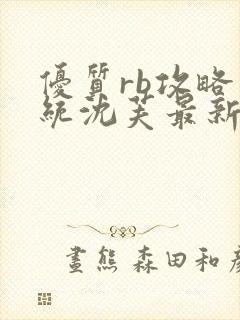 優質rb攻略
統沈芙最新
畫熊 森田和彥